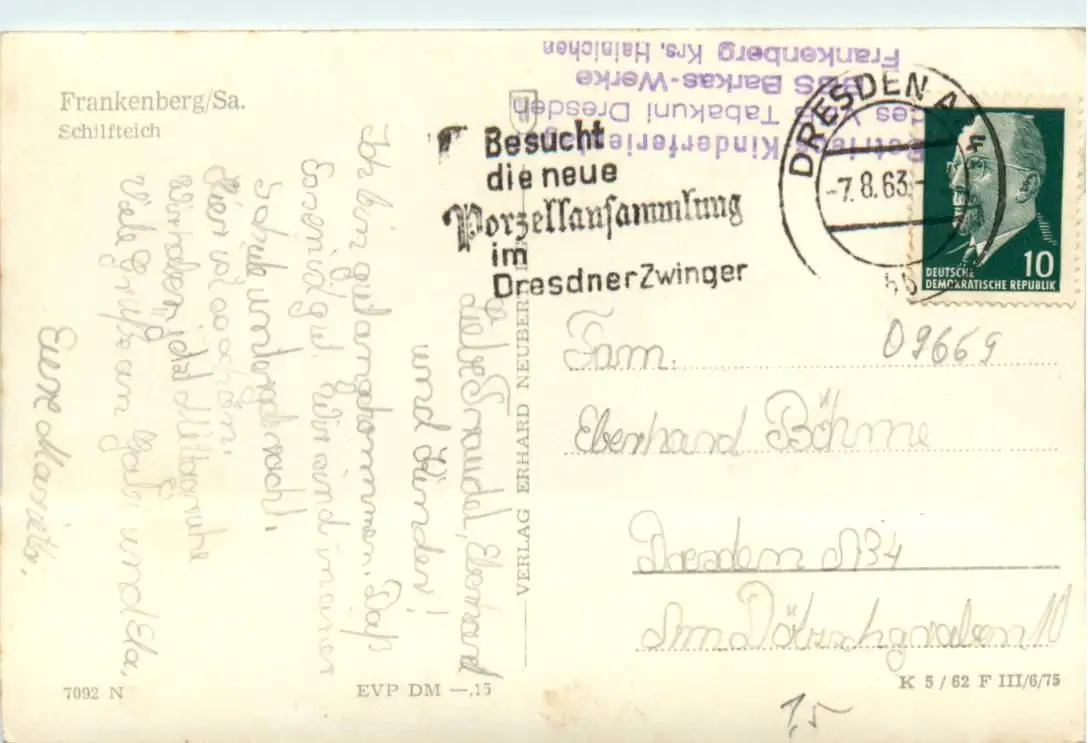 Frankenberg/Sa.
Schilfteich
liebe Traudel, Eberhard
und Kinder!
Ich bin gut angekommen. Daß
Essen ist gut. Wir sind in einer
Schule untergebracht.
Hier ist es schön.
Wir haben jetzt Mittagsruhe
Viele Grüße an Gabi und Ela.
Eure Marietta.
VERLAG ERHARD NEUBERT
Betriebs-Kinderferienlager
des VEB Tabakuni Dresden
BBS Barkas-Werke
Frankenberg Krs. Hainichen
Besucht
die neue
Porzellansammlung
im
Dresdner Zwinger
DRESDEN A
-7.8.63-
DEUTSCHE
DEMOKRATISCHE REPUBLIK
10
09669
Fam.
Eberhard Böhme
Dresden A34
Am Dölzschgraben 10
7092 N
EVP DM —,15
K 5/62 F III/6/75
1,5